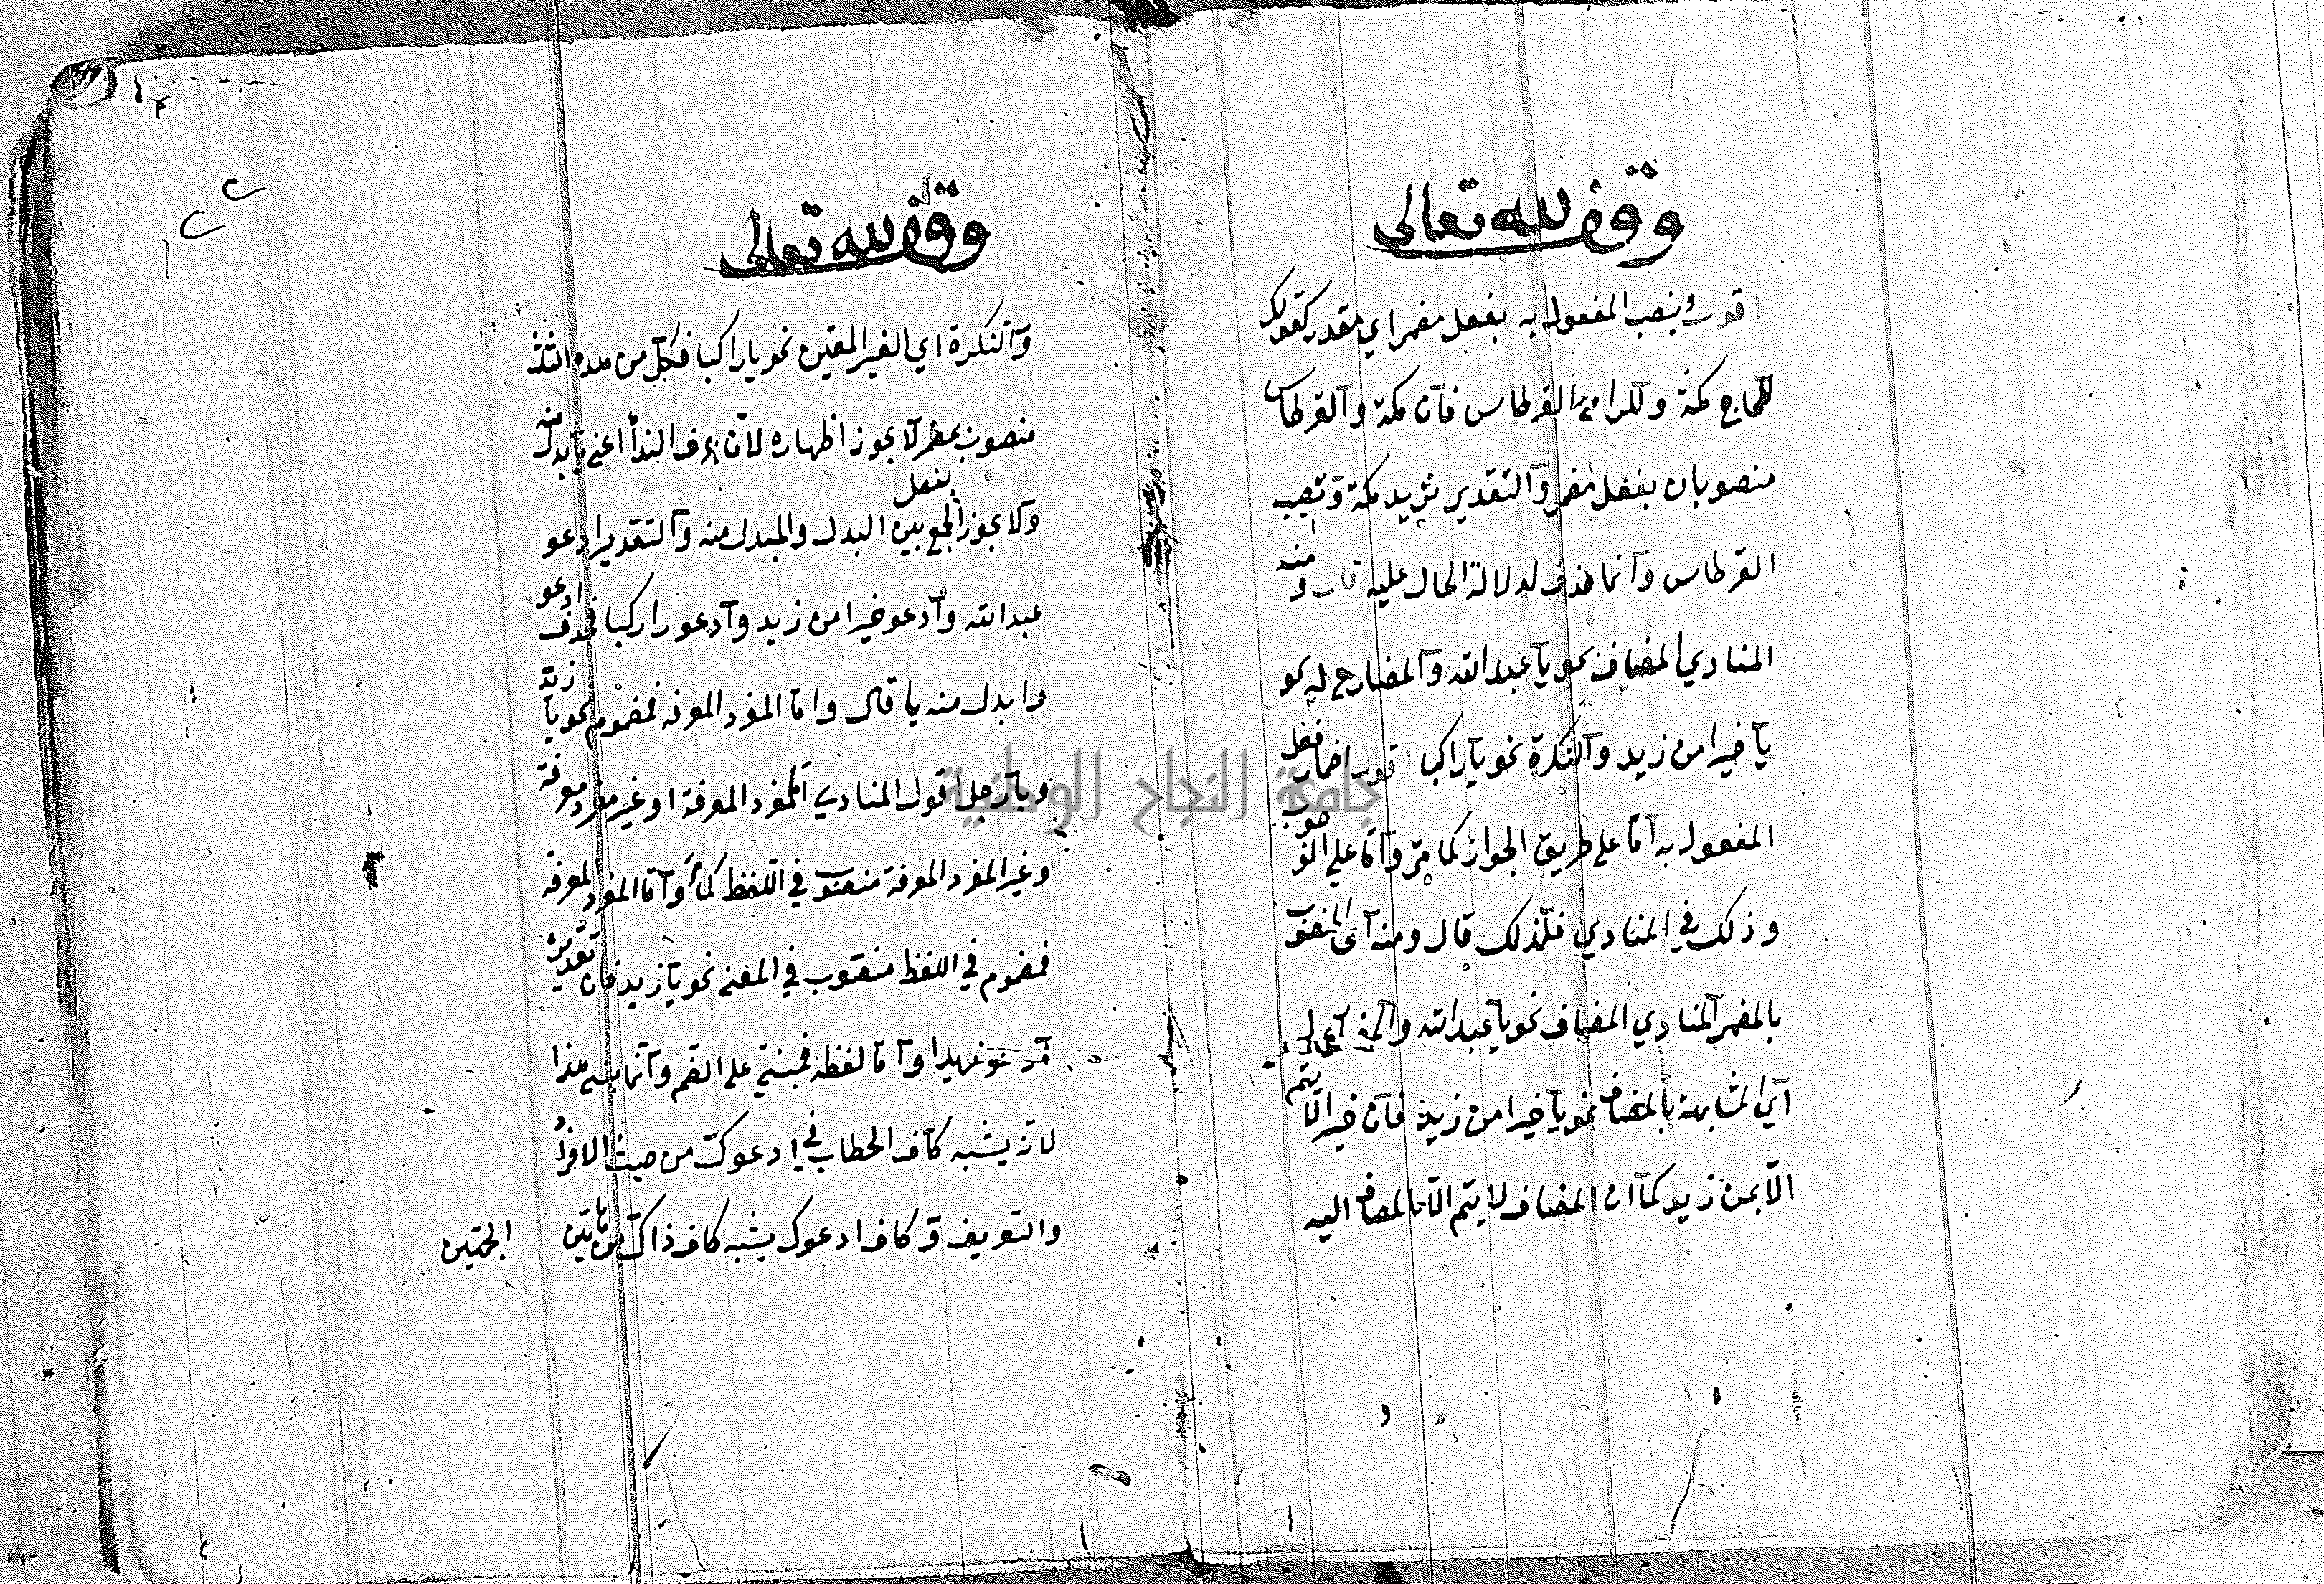 وقف لله تعالى
اقول وينصب المفعول به بفعل مضمر اي مقدر كقولك
للحاج مكة وللرامي القرطاس فان مكة والقرطاس
منصوبان بفعل مضمر والتقدير تريد مكة وتصيب
القرطاس وانما حذف لدلالة الحال عليه قال ومنه
المنادي المضاف نحو يا عبد الله والمضارع له نحو
يا خيرا من زيد والنكرة نحو يا راكبا اقول اضمار فعل
المفعول به اما على طريق الجواز كما مر واما على الوجوب
وذلك في المنادي فلذلك قال ومنه اى المنصوب
بالمضمر المنادي المضاف نحو يا عبد الله والمضارع له
اي المشابهة بالمضاف نحو يا خيرا من زيد فان خيرا لا يتم
الا بمن زيد كما ان المضاف لا يتم الا بالمضاف اليه
وقف لله تعالى
والنكرة اي الغير المعين نحو يا راكبا فكل من هذه الثلثة
منصوب بمضمر لا يجوز اظهاره لان حرف الندأ اعني يا بدل منه
بفعل
ولا يجوز الجمع بين البدل والمبدل منه والتقدير ادعو
عبد الله وادعو خيرا من زيد وادعو راكبا فحذف ادعو
وابدل منه يا قال واما المفرد المعرفة فمضموم نحو يا زيد
ويا رجل اقول المنادي اما مفرد المعرفة او غير مفرد معرفة
وغير المفرد المعرفة منصوب في اللفظ كما مر واما المفرد المعرفة
فمضموم في اللفظ منصوب في المعنى نحو يا زيد فان تقديره
ادعو زيدا واما لفظه فمبني على الضم وانما بني هذا
لانه يشبه كاف الخطاب في ادعوك من حيث الافراد
والتعريف وكاف ادعوك يشبه كاف ذاك من هاتين
الجهتين
جامعة النجاح الوطنية